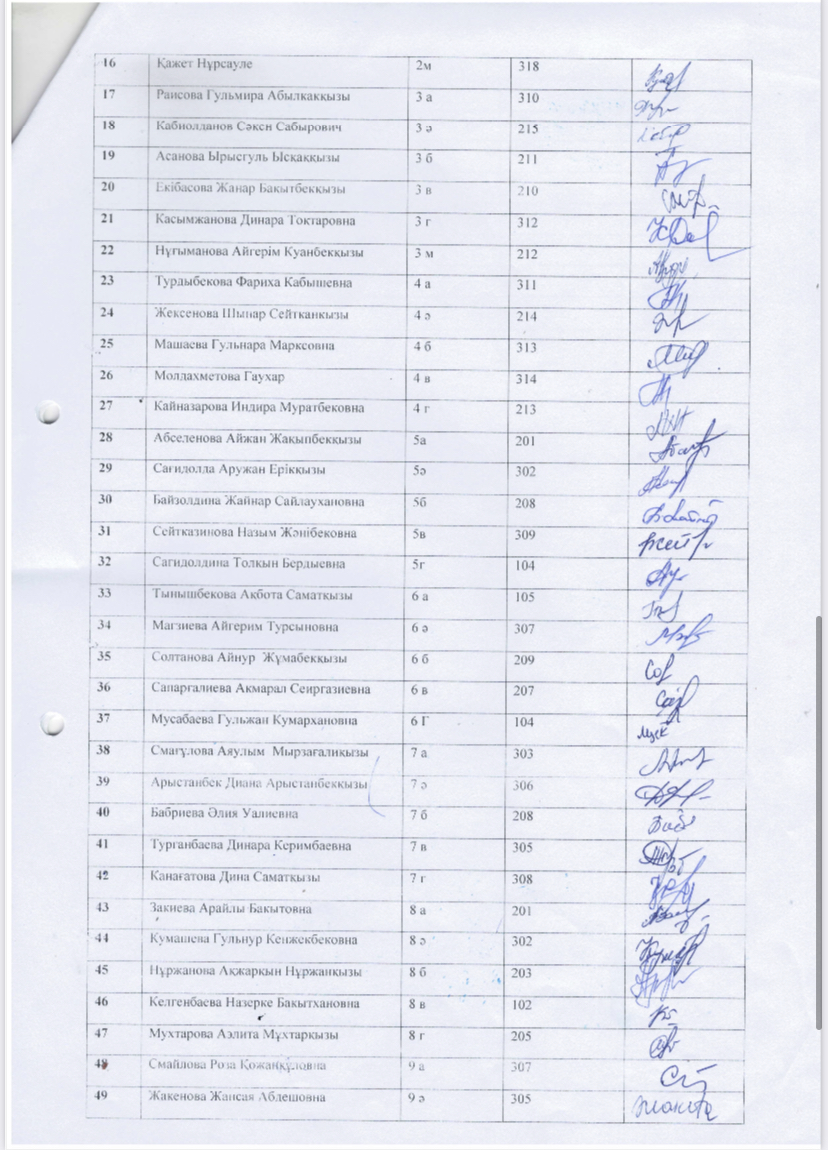 16 Қажет Нұрсауле 2м 318
17 Раисова Гульмира Абылкаккызы 3 а 310
18 Кабиолданов Сәкен Сабырович 3 ә 215
19 Асанова Ырысгуль Ысқаққызы 3 б 211
20 Екібасова Жанар Бакытбекқызы 3 в 210
21 Касымжанова Динара Токтаровна 3 г 312
22 Нұғыманова Айгерім Куанбекқызы 3 м 212
23 Турдыбекова Фариха Кабышевна 4 а 311
24 Жексенова Шынар Сейтканкызы 4 ә 214
25 Машаева Гульнара Марксовна 4 б 313
26 Молдахметова Гаухар 4 в 314
27 Кайназарова Индира Муратбековна 4 г 213
28 Абселенова Айжан Жақыпбекқызы 5а 201
29 Сағидолла Аружан Ерікқызы 5ә 302
30 Байзолдина Жайнар Сайлаухановна 5б 208
31 Сейтказинова Назым Жәнібековна 5в 309
32 Сагидолдина Толкын Бердыевна 5г 104
33 Тынышбекова Ақбота Саматқызы 6 а 105
34 Магзиева Айгерим Турсыновна 6 ә 307
35 Солтанова Айнур Жұмабекқызы 6 б 209
36 Сапаргалиева Акмарал Сеиргазиевна 6 в 207
37 Мусабаева Гульжан Кумархановна 6 Г 104
38 Смағұлова Аяулым Мырзағалиқызы 7 а 303
39 Арыстанбек Диана Арыстанбекқызы 7 ә 306
40 Бабриева Әлия Уалиевна 7 б 208
41 Турганбаева Динара Керимбаевна 7 в 305
42 Канағатова Дина Саматқызы 7 г 308
43 Закиева Арайлы Бакытовна 8 а 201
44 Кумашева Гульнур Кенжекбековна 8 ә 302
45 Нұржанова Ақжаркын Нұржанқызы 8 б 203
46 Келгенбаева Назерке Бакытхановна 8 в 102
47 Мухтарова Аэлита Мұхтарқызы 8 г 205
48 Смайлова Роза Қожанқұловна 9 а 307
49 Жакенова Жансая Абдешовна 9 ә 305